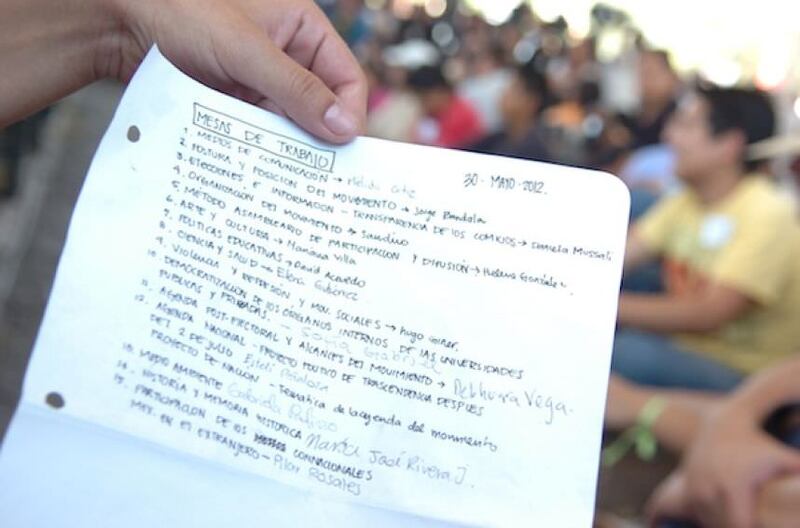 MESAS DE TRABAJO
30 · MAYO · 2012.
1. MEDIOS DE COMUNICACIÓN →
2. POSTURA Y POSICION DEL MOVIMIENTO → Jorge
3. ELECCIONES E INFORMACION - TRANSPARENCIA DE LOS COMICIOS → Daniela Mussali
4. ORGANIZACION DEL MOVIMIENTO → Sandino
5. METODO ASAMBLEARIO DE PARTICIPACION Y DIFUSIÓN → Huelena González
6. ARTE Y CULTURA → Mariana Villa
7. POLITICAS EDUCATIVAS → David Acevedo
8. CIENCIA Y SALUD → Elena Gutiérrez
9. VIOLENCIA Y REPRESION, Y MOV. SOCIALES → Hugo
10. DEMOCRATIZACION DE LOS ÓRGANOS INTERNOS DE LAS UNIVERSIDADES
PÚBLICAS Y PRIVADAS. - Sofia
11. AGENDA POST-ELECTORAL Y ALCANCES DEL MOVIMIENTO → Vega.
12. AGENDA NACIONAL - PROYECTO POLITICO DE TRASCENDENCIA DESPUES
DEL 2 DE JULIO
PROYECTO DE NACION - Tematica de la agenda del movimiento
13. MEDIO AMBIENTE Gabriela
14. HISTORIA Y MEMORIA HISTORICA María José Rivera J.
15. PARTICIPACION DE LOS CONNACIONALES
MEX. EN EL EXTRANJERO - Pilar Rosales